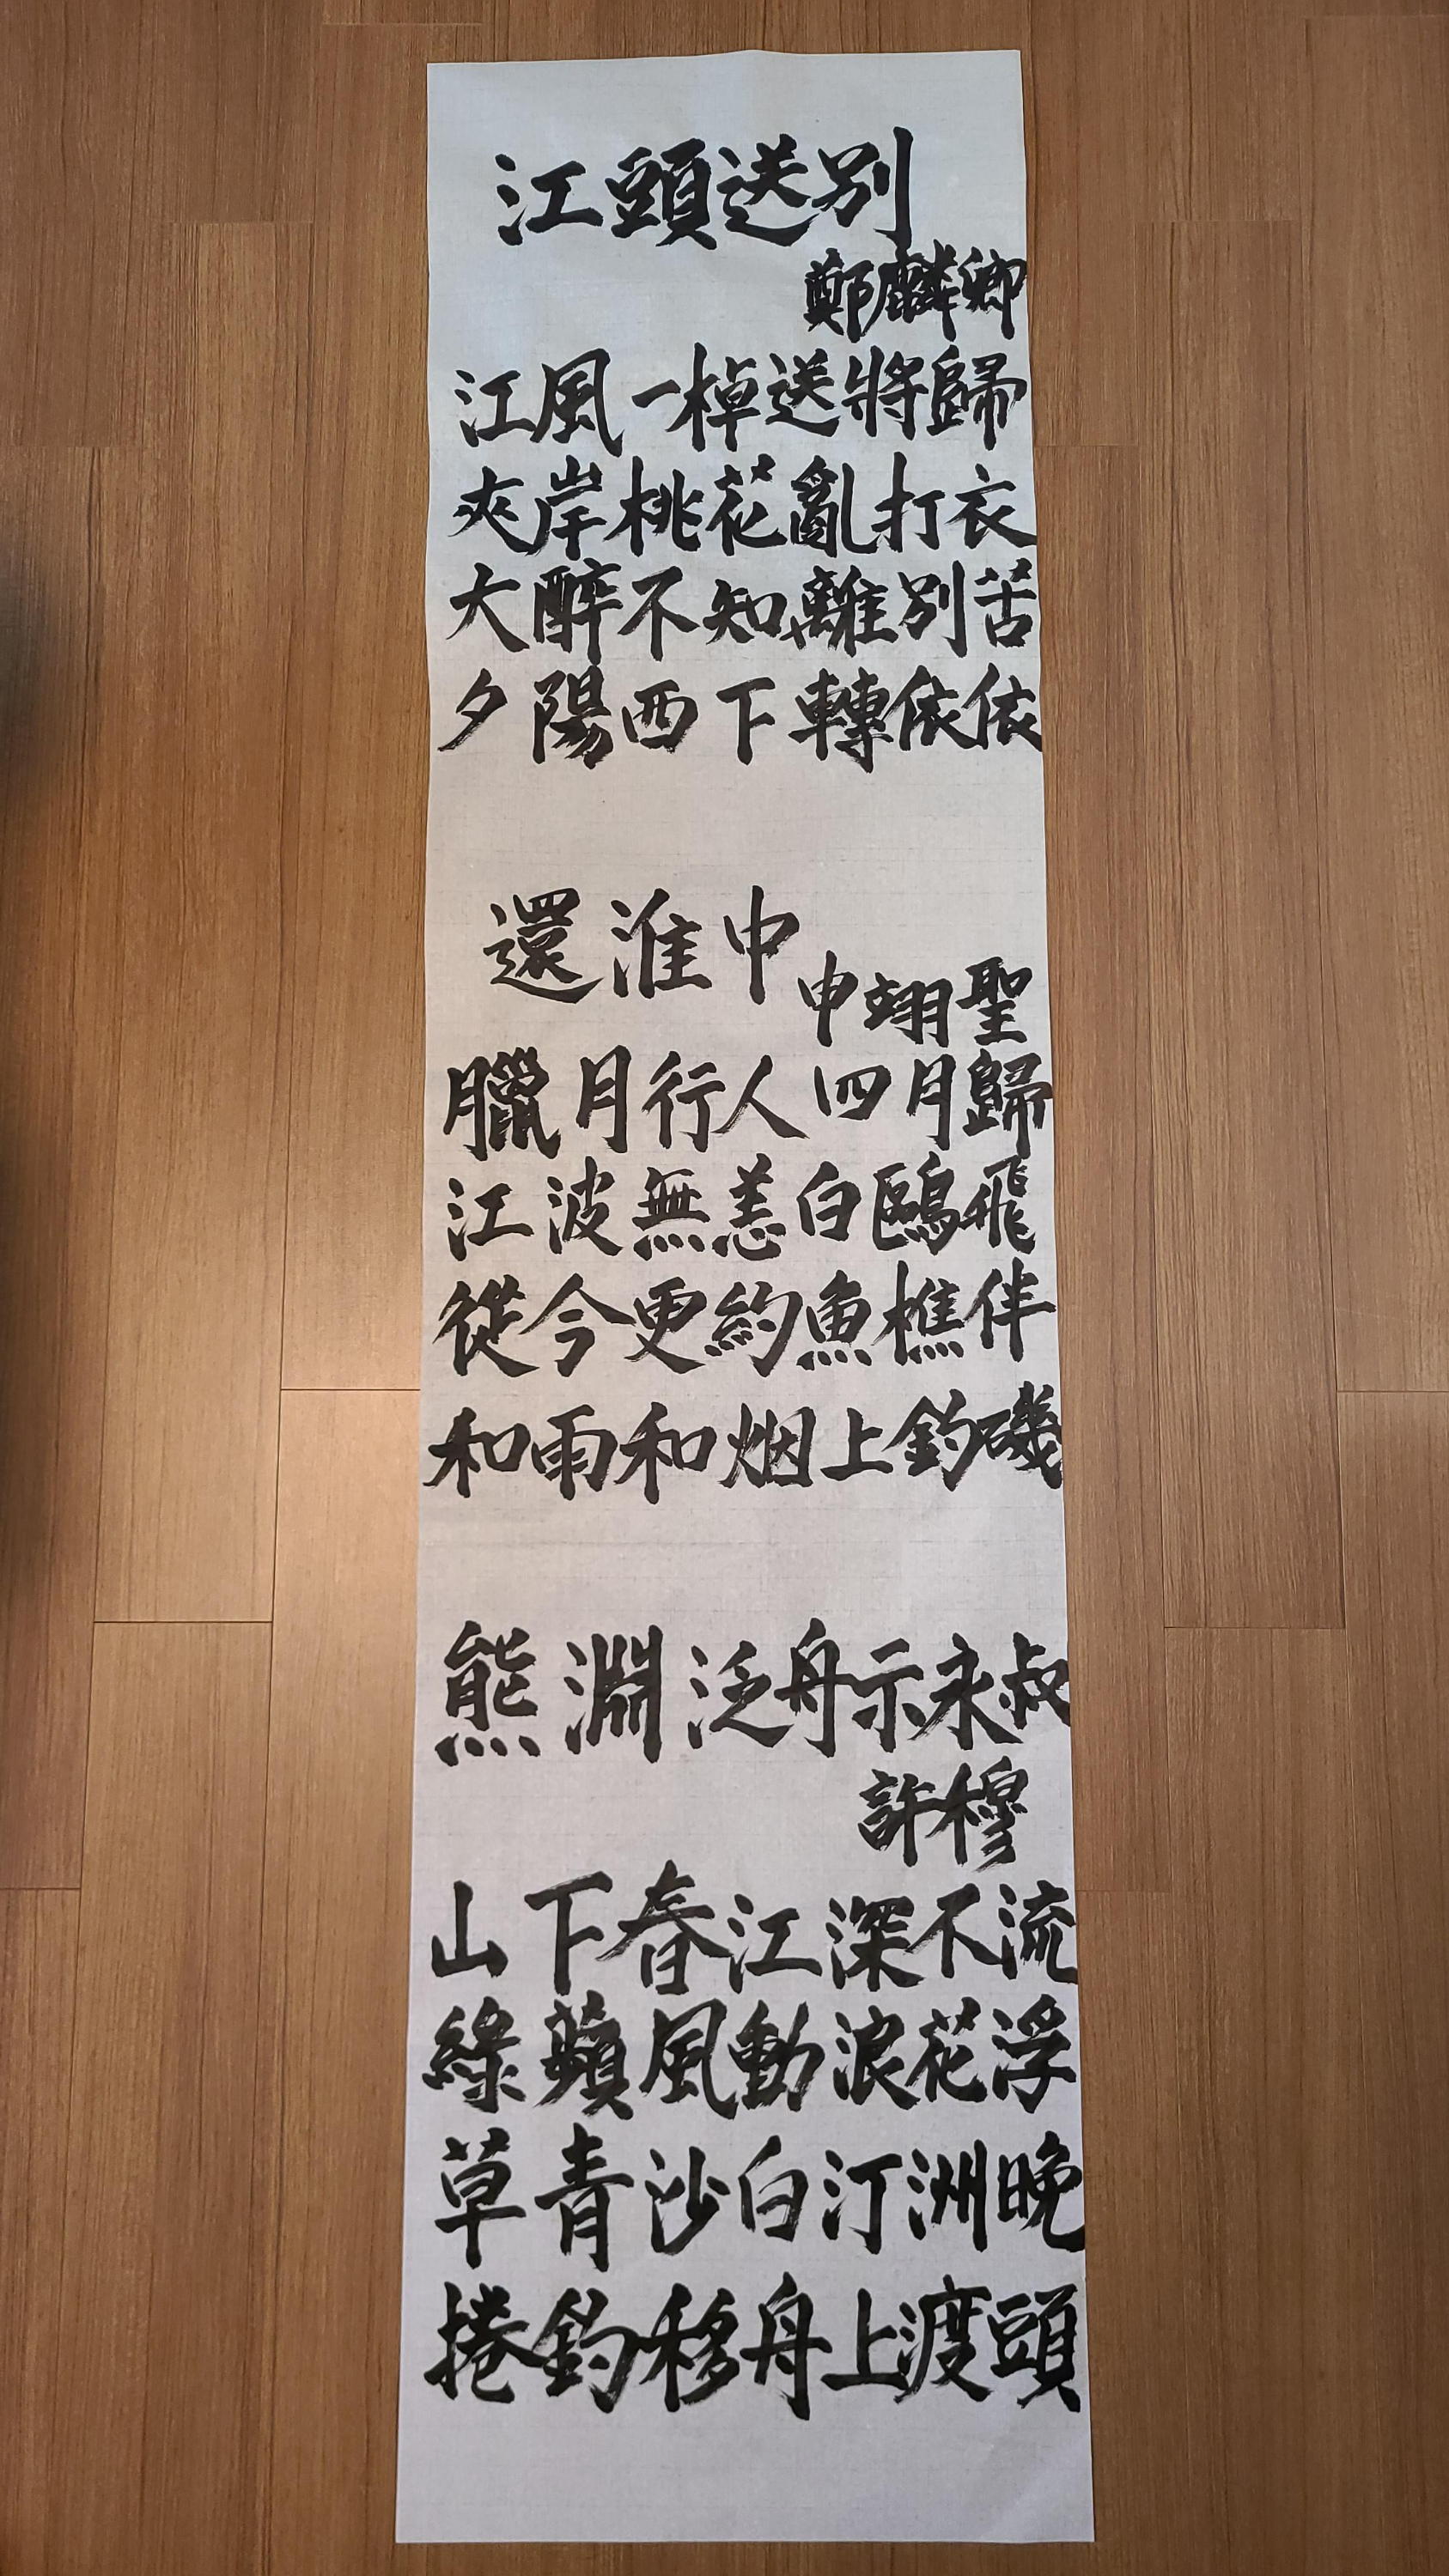 江頭送別
鄭麟卿
江風一棹送將歸
夾岸桃花亂打衣
大醉不知離別苦
夕陽西下轉依依
還淮中
申翊聖
臘月行人四月歸
江波無恙白鷗飛
從今更約魚樵伴
和雨和烟上釣磯
熊淵泛舟示永叔
許穆
山下春江深不流
綠蘋風動浪花浮
草青沙白汀洲晚
捲釣移舟上渡頭